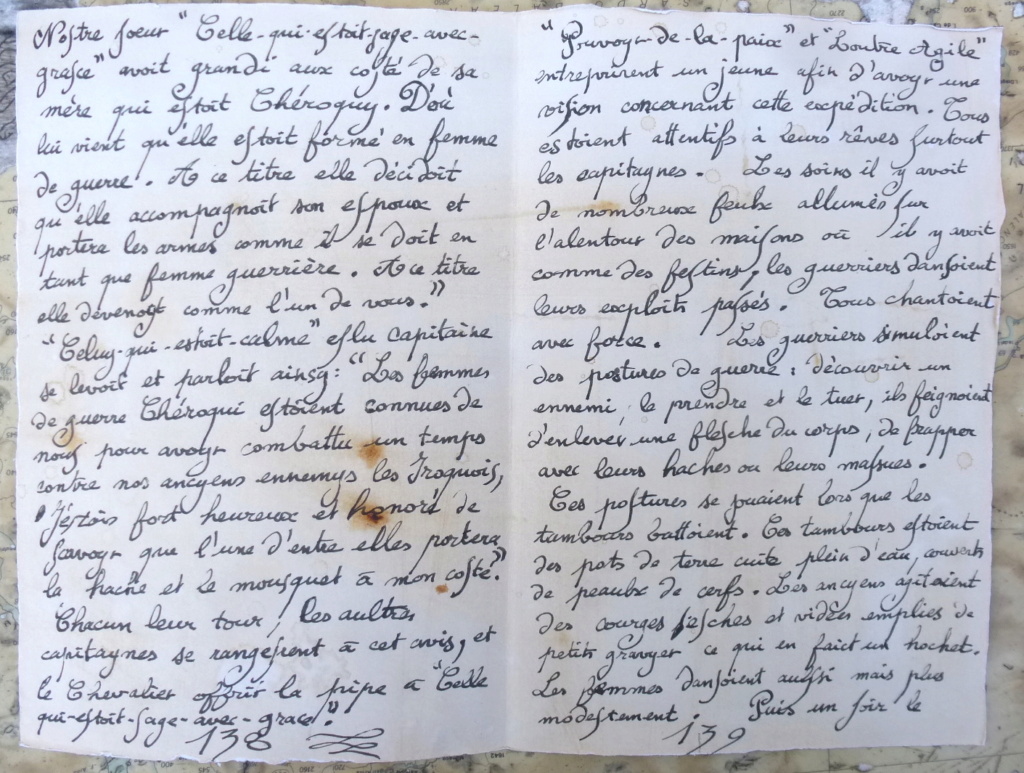 Nostre soeur "Celle-qui-estoit-sage-avec-
grasce" avoit grandi aux costé de sa
mère qui estoit Chéroquy. D'où
lui vient qu'elle estoit formé en femme
de guerre. A ce titre elle décidoit
qu'elle accompagnoit son espoux et
portera les armes comme il se doit en
tant que femme guerrière. A ce titre
elle devenoyt comme l'un de vous."
"Celuy-qui-estoit-calme" eslu capitaine
se levoit et parloit ainsy: "Les femmes
de guerre Chéroqui estoient connues de
nous pour avoyr combattu un temps
contre nos ancyens ennemys les Iroquois,
J'estois fort heureux et honoré de
savoyr que l'une d'entre elles portera
la hache et le mousquet à mon costé."
Chacun leur tour, les aultres
capitaynes se rangesrent à cet avis, et
le Chevalier offrir la pipe à "Celle
qui-estoit-sage-avec-grace".
138
"Pouvoyr-de-la-paix" et "Loutre Agile"
entreprirent un jeune afin d'avoyr une
vision concernant cette expédition. Tous
estoient attentifs à leurs rêves surtout
les capitaynes. Les soirs il y avoit
de nombreux feulx allumés sur
l'alentour des maisons où il y avoit
comme des festins, les guerriers dansoient
leurs exploits passés. Tous chantoient
avec force. Les guerriers simuloient
des postures de guerre : découvrir un
ennemi, le prendre et le tuer, ils feignoient
d'enlever une flesche du corps, de frapper
avec leurs haches ou leurs massues.
Ces postures se jouaient lors que les
tambours battoient. Ces tambours estoient
des pots de terre cuite plein d'eau, couverts
de peaulx de cerfs. Les ancyens agitoient
des courges sesches et vidées emplies de
petits gravyer ce qui en faict un hochet.
Les femmes dansoient aussi mais plus
modestement. Puis un soir le
139